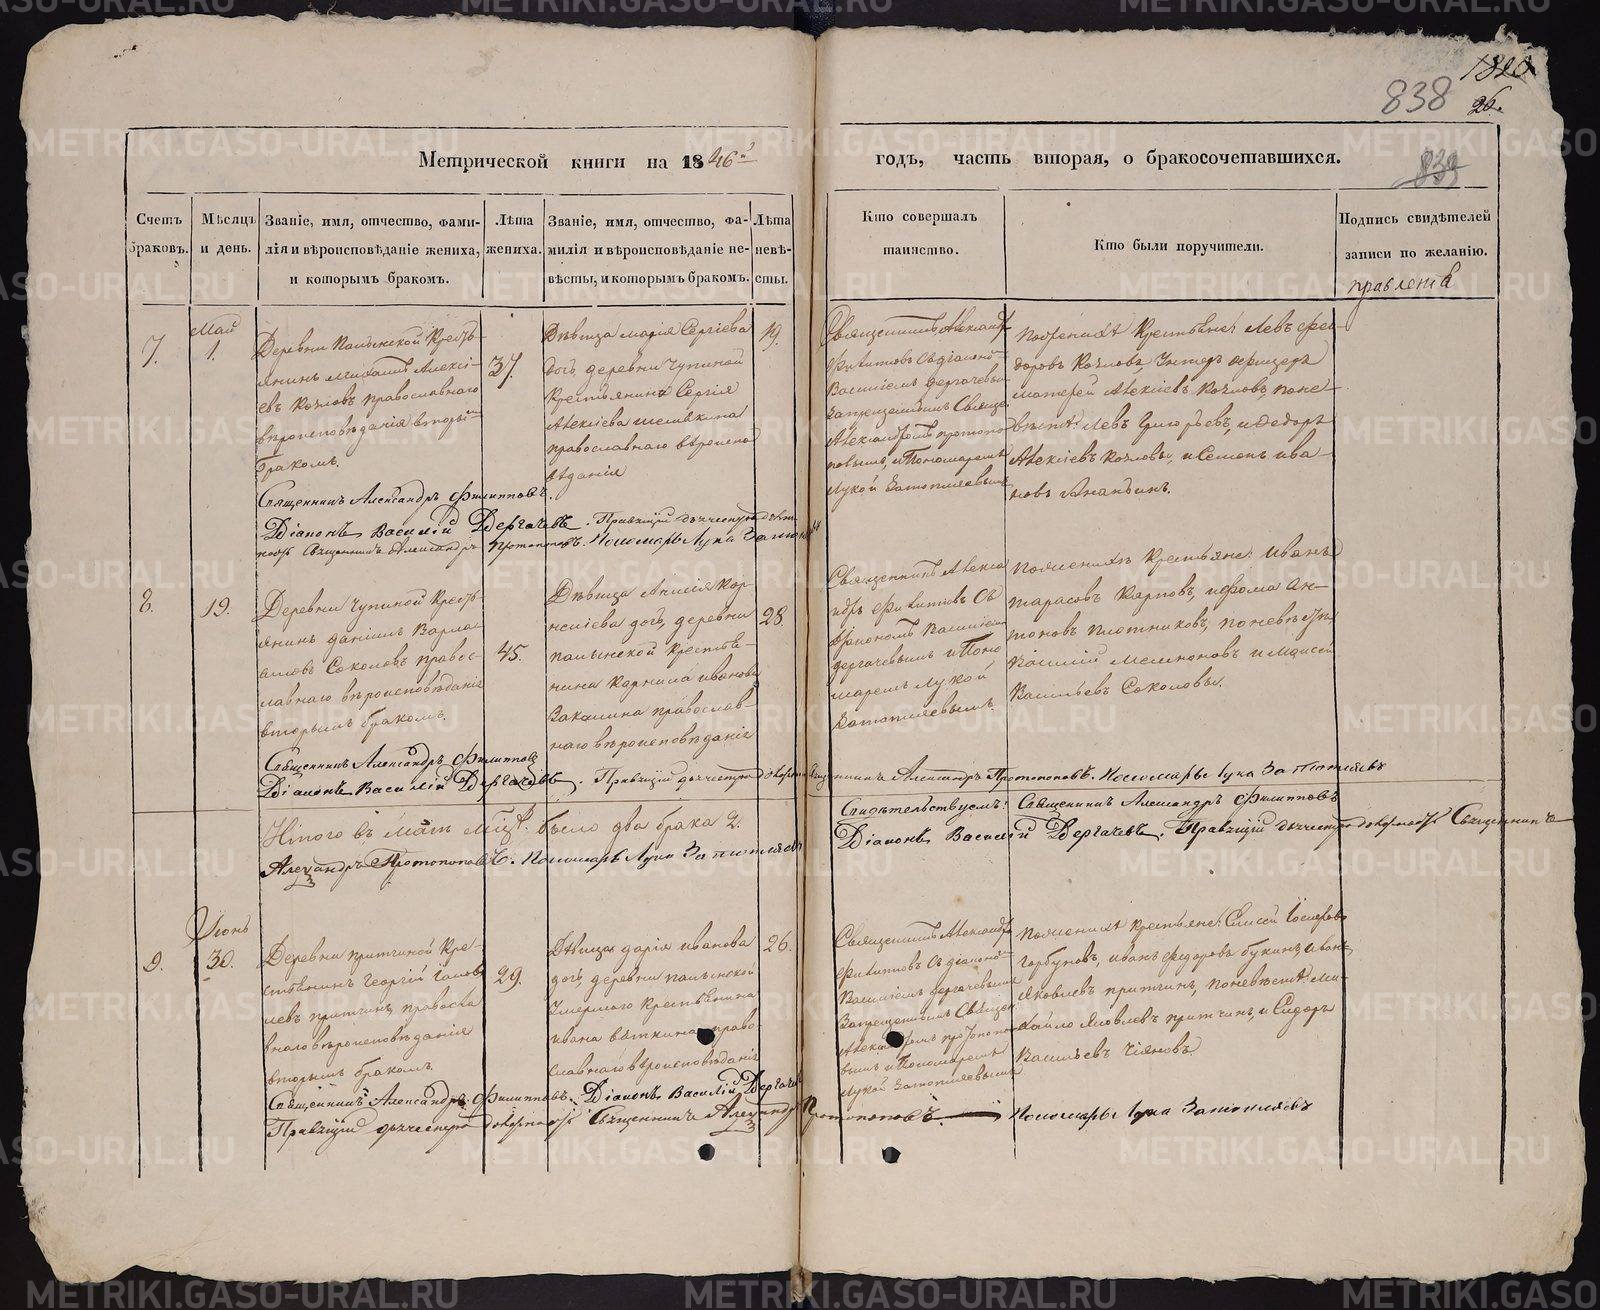 838
26.
Метрической книги на 1846й
годъ, часть вторая, о бракосочетавшихся.
Счетъ браковъ.
Мѣсяцъ и день.
Званіе, имя, отчество, фами-
лія и вѣроисповѣданіе жениха,
и которымъ бракомъ.
Лѣта
жениха.
Званіе, имя, отчество, фа-
милія и вѣроисповѣданіе не-
вѣсты, и которымъ бракомъ.
Лѣта
невѣ-
сты.
Кто совершалъ
таинство.
Кто были поручители.
Подпись свидѣтелей
записи по желанію.
7.
Май
1.
Деревни Крестъ-
янинъ Михаилъ Алексі-
евъ Козловъ православнаго
вѣроисповѣданія вторы
бракомъ.
37.
Дѣвица Марія Сергіева
дочь, деревни Чупиной
Крестьянина Сергія
Алексіева
православнаго вѣроиспо
вѣданія
19.
Священникъ Александръ
Филиповъ съ діакономъ
Василіемъ Дергачевым
Запрещеннымъ Священ
Александромъ Протопо
повымъ, и Пономаремъ
Лукой
Крестьяне: Левъ Фео-
доровъ Козловъ, Унтеръ офицеръ
Алексіевъ Козловъ, поне-
вѣстѣ: Левъ Григорьевъ, и Федоръ
Алексіевъ Козловы, и Семенъ Ива-
новъ
Священникъ Александръ Филипповъ.
Діаконъ Василій Дергачевъ. Правящій
Священникъ Александръ Протопоповъ. Пономарь Лука
8.
19.
Деревни Чупиной Крестъ-
янинъ Даніилъ Варла-
амовъ Соколовъ правос-
лавнаго вѣроисповѣданія
вторымъ бракомъ.
45.
Дѣвица Кор-
неліева дочь, деревни
Крестья-
нина Корнила Иванова
Вакалина православ-
наго вѣроисповѣданія
28.
Священникъ Алекса
ндръ Филиповъ съ
Діакономъ Василіем
Дергачевымъ и Поно
маремъ Лукой
Пожених Крестьяне: Иванъ
Тарасовъ Карповъ, и Фома Ан-
тоновъ Плотниковъ, поневѣстѣ
Василій и Моисей
Васильевъ Соколовы.
Священникъ Александръ Филипповъ
Діаконъ Василій Дергачевъ. Правящій Священникъ Александръ Протопоповъ. Пономарь Лука
Итого въ Маѣ было два брака 2.
Свидѣтельствуемъ: Священникъ Александръ Филипповъ
Діаконъ Василій Дергачевъ. Правящій Священникъ
Александръ Протопоповъ. Пономарь Лука
9.
Июнь
30.
Деревни Притчиной Кре-
стьянинъ Георгій Яков
левъ Притчинъ правосла
внаго вѣроисповѣданія
вторымъ бракомъ.
29.
Дѣвица Дарія Иванова
дочь, деревни
Умершаго Крестьянина
Ивана Вяткина право-
славнаго вѣроисповѣданія
26.
Священникъ Александръ
Филиповъ съ діакономъ
Василіемъ Дергачевымъ
Запрещеннымъ Священ
Александромъ Протопопо
вымъ и Пономаремъ
Лукой
Пожених Крестьяне: Елисей
Горбуновъ, Иванъ Федоровъ Букинъ, Иванъ
Яковлевъ Притчинъ, поневѣстѣ: Ми-
хаило Яковлевъ Притчинъ, и Сидоръ
Васильевъ
Священникъ Александръ Филипповъ. Діаконъ Василій Дергачев
Правящій Священникъ Александръ Протопоповъ. Пономарь Лука
METRIKI.GASO-URAL.RU